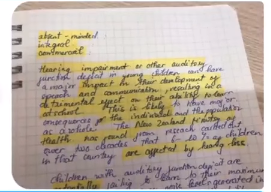 absent-minded
integral
controversial
Hearing impairment or other auditory
function deficit in young children can have
a major impact on their development of
speech and communication, resulting in a
detrimental effect on their ability to learn
at school. This is likely to have major
consequences for the individual and the population
as a whole. The New Zealand Ministry of
Health has found from research carried out
over two decades that 6-10% of children
in that country are affected by hearing loss.
children with auditory function deficit are
learn to their maximum
noise levels generated in